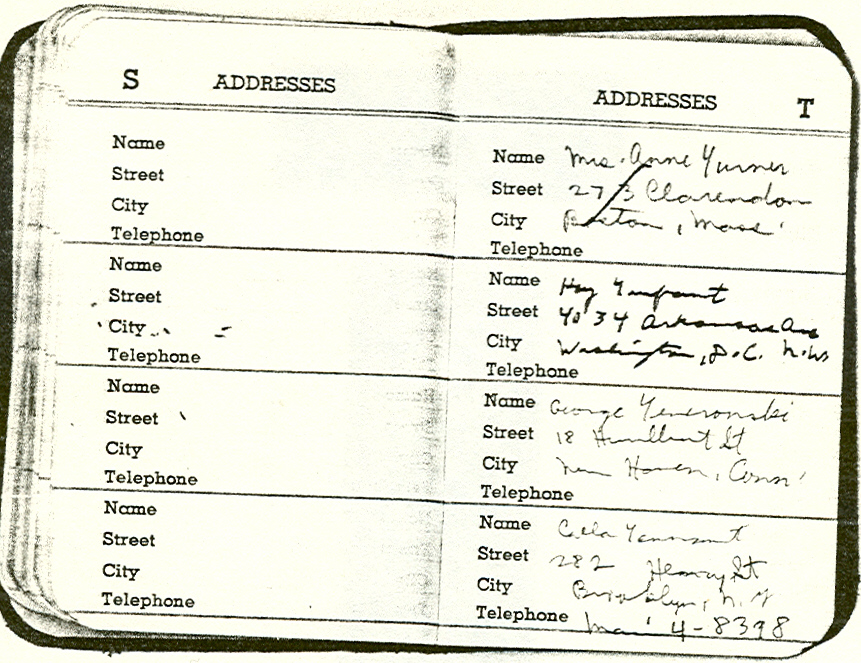 S ADDRESSES
Name
Street
City
Telephone
Name
Street
City
Telephone
Name
Street
City
Telephone
Name
Street
City
Telephone
ADDRESSES T
Name Mrs. Anne Turner
Street 273 Clarendon
City Boston, Mass.
Telephone
Name
Street 4034 Arkansas Ave
City Washington, D.C. N.W.
Telephone
Name George
Street 18 St
City New Haven, Conn.
Telephone
Name
Street 282 Henry St
City Brooklyn, N.Y.
Telephone Mai 4-8398